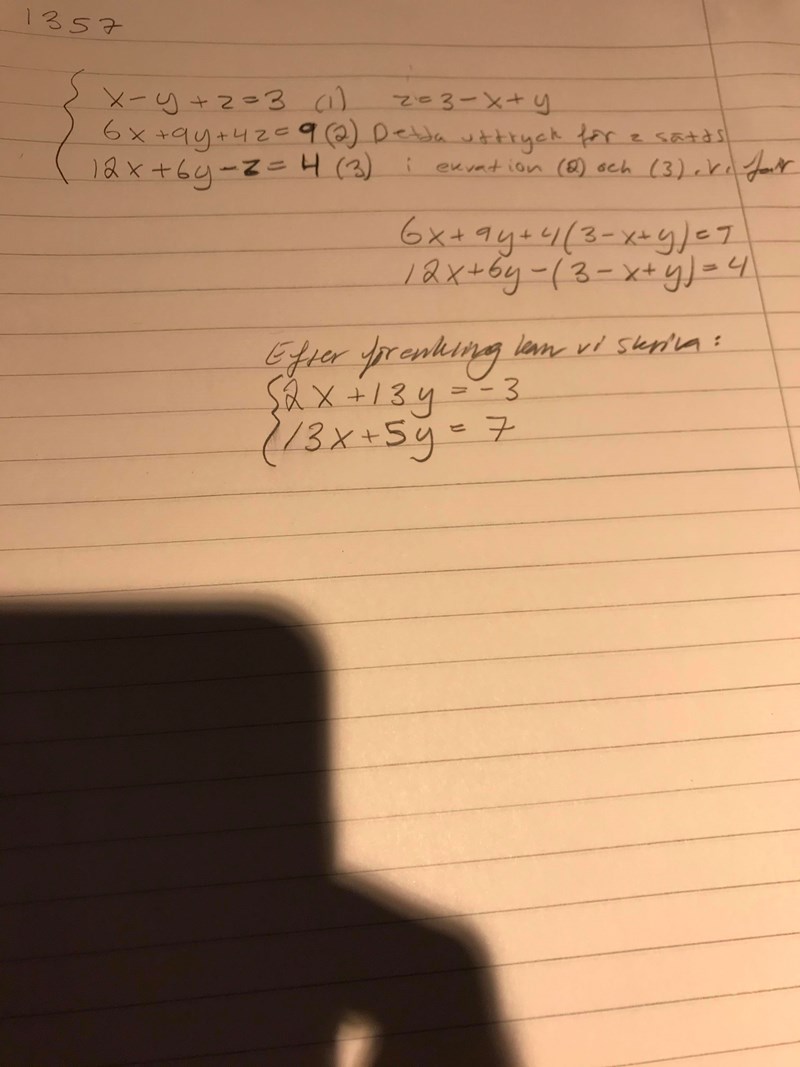 1357
x-y+z=3 (1) z=3-x+y
6x+9y+4z=9(2) Detta uttryck för z sätts
12x+6y-z=4(3) i ekvation (2) och (3). Vi får
6x+9y+4(3-x+y)=9
12x+6y-(3-x+y)=4
Efter förenkling kan vi skriva:
2x+13y=-3
13x+5y=7